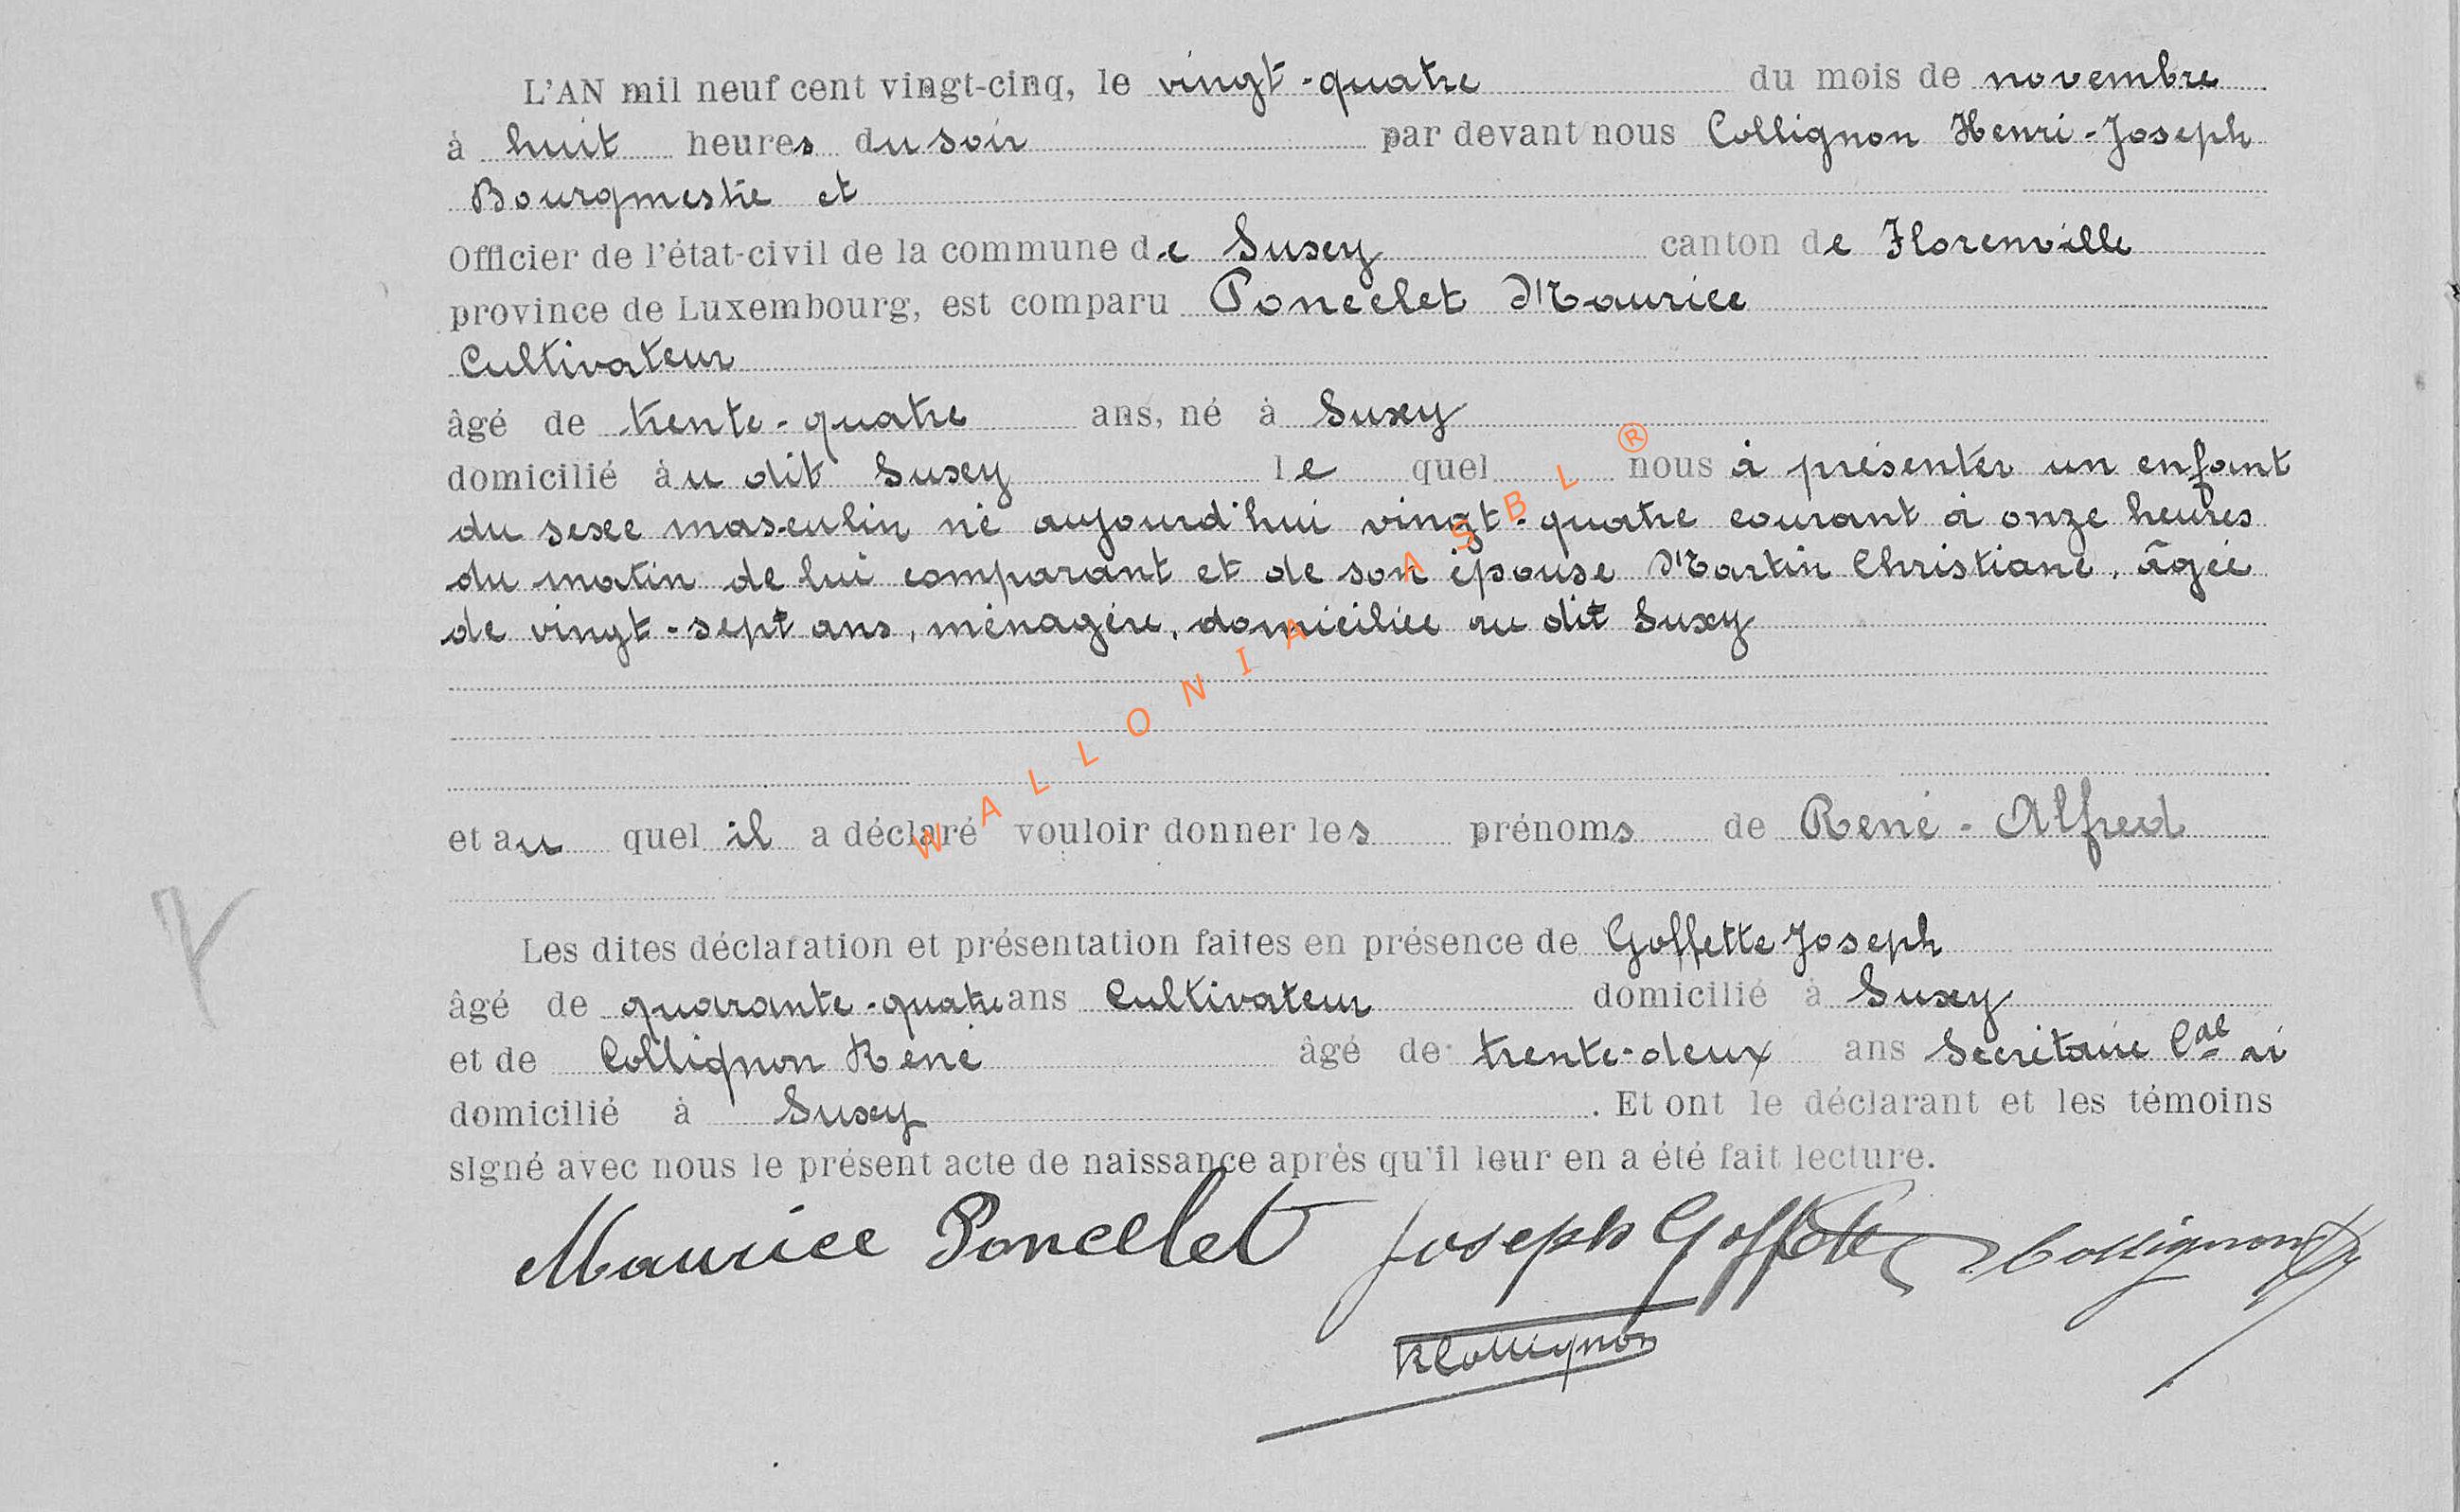 L'AN mil neuf cent vingt-cinq, le vingt-quatre du mois de novembre
à huit heures du soir par devant nous Collignon Henri-Joseph
Bourgmestre et
Officier de l'état-civil de la commune de Suxy canton de Florenville
province de Luxembourg, est comparu Poncelet Maurice
Cultivateur
âgé de trente-quatre ans, né à Suxy
domicilié àu dit Suxy le quel nous à présenter un enfant
du sexe masculin né aujourd'hui vingt-quatre courant à onze heures
du matin de lui comparant et de son épouse Martin Christiane, âgée
de vingt-sept ans, ménagère, domiciliée au dit Suxy
WALLONIA ASBL ®
et au quel il a déclaré vouloir donner les prénoms de René-Alfred
Les dites déclaration et présentation faites en présence de Goffette Joseph
âgé de quarante-quatre ans Cultivateur domicilié à Suxy
et de Collignon René âgé de trente-deux ans Secrétaire Cal à
domicilié à Suxy . Et ont le déclarant et les témoins
signé avec nous le présent acte de naissance après qu'il leur en a été fait lecture.
Maurice Poncelet Joseph Goffette Collignon
R Collignon